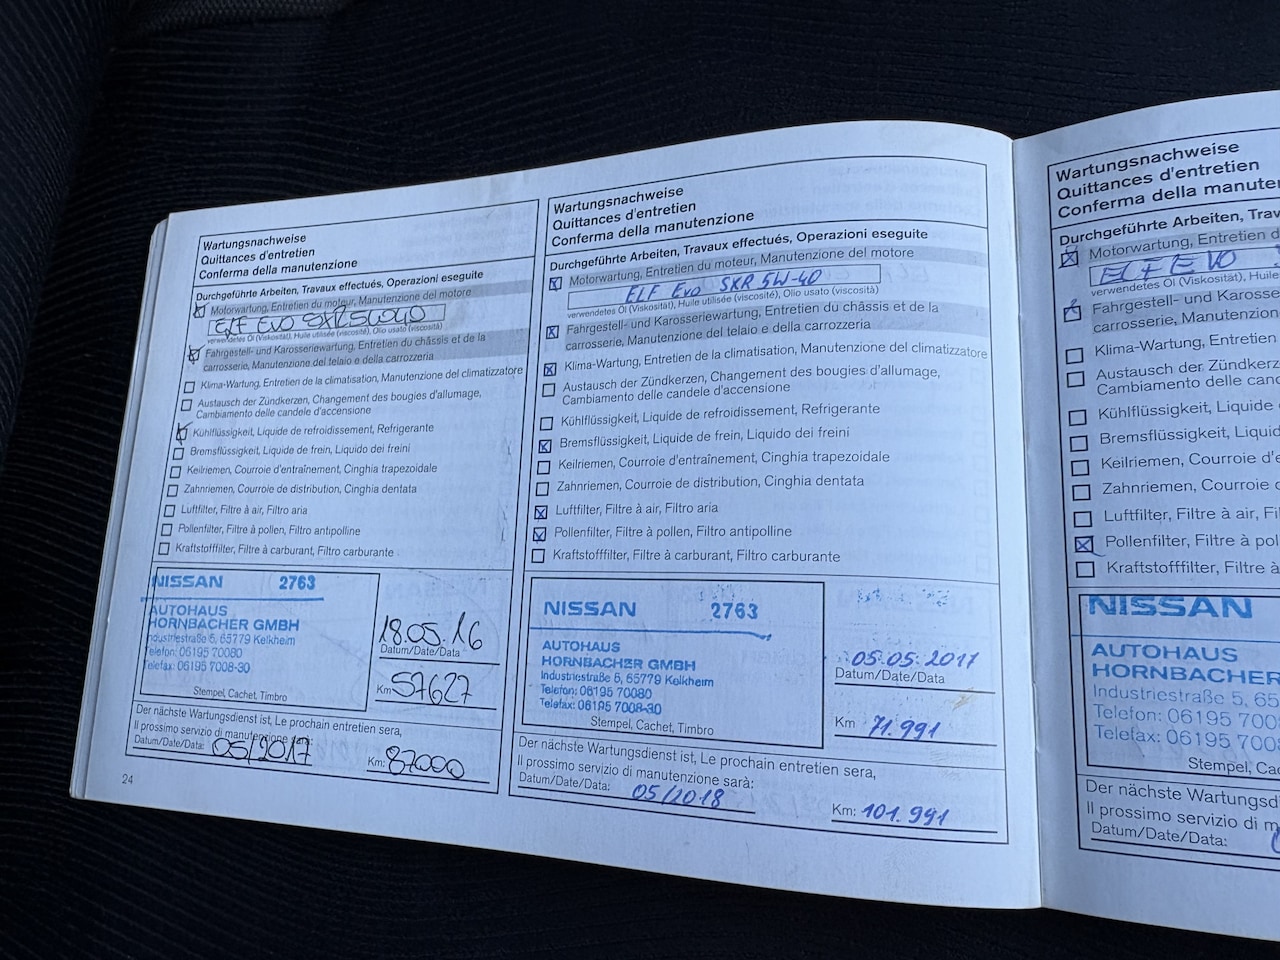 Wartungsnachweise
Quittances d'entretien
Conferma della manutenzione
Durchgeführte Arbeiten, Travaux effectués, Operazioni eseguite
Motorwartung, Entretien du moteur, Manutenzione del motore
ELF EVO SXR 5W40
verwendetes Öl (Viskosität), Huile utilisée (viscosité), Olio usato (viscosità)
Fahrgestell- und Karosseriewartung, Entretien du châssis et de la
carrosserie, Manutenzione del telaio e della carrozzeria
Klima-Wartung, Entretien de la climatisation, Manutenzione del climatizzatore
Austausch der Zündkerzen, Changement des bougies d'allumage,
Cambiamento delle candele d'accensione
Kühlflüssigkeit, Liquide de refroidissement, Refrigerante
Bremsflüssigkeit, Liquide de frein, Liquido dei freini
Keilriemen, Courroie d'entraînement, Cinghia trapezoidale
Zahnriemen, Courroie de distribution, Cinghia dentata
Luftfilter, Filtre à air, Filtro aria
Pollenfilter, Filtre à pollen, Filtro antipolline
Kraftstofffilter, Filtre à carburant, Filtro carburante
NISSAN 2763
AUTOHAUS
HORNBACHER GMBH
Industriestraße 5, 65779 Kelkheim
Telefon: 06195 70080
Telefax: 06195 7008-30
Stempel, Cachet, Timbro
18.05.16
Datum/Date/Data
Km 57627
Der nächste Wartungsdienst ist, Le prochain entretien sera,
Il prossimo servizio di manutenzione sarà:
Datum/Date/Data: 05/2017
Km: 87000
24
Wartungsnachweise
Quittances d'entretien
Conferma della manutenzione
Durchgeführte Arbeiten, Travaux effectués, Operazioni eseguite
Motorwartung, Entretien du moteur, Manutenzione del motore
ELF Evo SXR 5W-40
verwendetes Öl (Viskosität), Huile utilisée (viscosité), Olio usato (viscosità)
Fahrgestell- und Karosseriewartung, Entretien du châssis et de la
carrosserie, Manutenzione del telaio e della carrozzeria
Klima-Wartung, Entretien de la climatisation, Manutenzione del climatizzatore
Austausch der Zündkerzen, Changement des bougies d'allumage,
Cambiamento delle candele d'accensione
Kühlflüssigkeit, Liquide de refroidissement, Refrigerante
Bremsflüssigkeit, Liquide de frein, Liquido dei freini
Keilriemen, Courroie d'entraînement, Cinghia trapezoidale
Zahnriemen, Courroie de distribution, Cinghia dentata
Luftfilter, Filtre à air, Filtro aria
Pollenfilter, Filtre à pollen, Filtro antipolline
Kraftstofffilter, Filtre à carburant, Filtro carburante
NISSAN 2763
AUTOHAUS
HORNBACHER GMBH
Industriestraße 5, 65779 Kelkheim
Telefon: 06195 70080
Telefax: 06195 7008-30
Stempel, Cachet, Timbro
05.05.2017
Datum/Date/Data
Km 71.991
Der nächste Wartungsdienst ist, Le prochain entretien sera,
Il prossimo servizio di manutenzione sarà:
Datum/Date/Data: 05/2018
Km: 101.991
Wartungsnachweise
Quittances d'entretien
Conferma della manuten
Durchgeführte Arbeiten, Trav
Motorwartung, Entretien d
ELF EVO
verwendetes Öl (Viskosität), Huile
Fahrgestell- und Karosse
carrosserie, Manutenzion
Klima-Wartung, Entretien
Austausch der Zündkerz
Cambiamento delle cand
Kühlflüssigkeit, Liquide
Bremsflüssigkeit, Liquid
Keilriemen, Courroie d'e
Zahnriemen, Courroie
Luftfilter, Filtre à air, Fil
Pollenfilter, Filtre à pol
Kraftstofffilter, Filtre à
NISSAN
AUTOHAUS
HORNBACHER
Industriestraße 5, 65
Telefon: 06195 700
Telefax: 06195 700
Stempel, Cac
Der nächste Wartungsd
Il prossimo servizio di m
Datum/Date/Data: